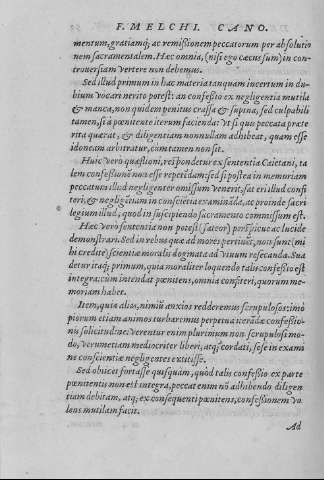 F. MELCHI. CANO.
mentum, gratiamq́; ac remißionem peccatorum per absolutio
nem sacramentalem. Hæc omnia, (nisi ego cæcus sum) in con-
trouersiam vertere non debemus.
Sed illud primum in hac materia tanquam incertum in du-
bium vocari merito potest: an confeßio ex negligentia mutila
& manca, non quidem penitus crassa & supina, sed culpabili
tamen, si à pœnitente iterum facienda: Vt si quo peccata præte
rita quærat, & diligentiam nonnullam adhibeat, quam esse
idoneam arbitratur, cùm tamen non sit.
Huic verò quæstioni, respondetur ex sententia Caietani, ta
lem confeßionē non esse repetēdam: sed si postea in memoriam
peccatum illud negligenter omissum venerit, sat eri illud confi
teri, & negligētiam in conscietia examinādâ, ac proinde sacri
legium illud, quod in suscipiendo sacramento commissum est.
Hæc verò sententia non potest (fateor) perspicue ac lucide
demonstrari. Sed in rebus quæ ad mores pertinēt, non sunt (mi
hi crede) scientiæ moralis dogmata ad viuum resecanda. Sua
detur itaq; primum, quia moraliter loquendo talis confeßio est
integra: cùm intendat pœnitens, omnia confiteri, quorum me-
moriam habet.
Item, quia alios, nimiũ anxios redderemus scrupulosos: imò
piorum etiam animos turbaremus perpetua iterādæ confeßio-
nis solicitudine. Verentur enim plurimùm non scrupulosi mo-
dò, verumetiam mediocriter liberi, atq; cordati, se se in exami
ne conscientiæ negligentes extitisse.
Sed obiicet fortasse quispiam, quòd talis confeßio ex parte
pœnitentis non est integra, peccat enim nō adhibendo diligen
tiam debitam, atq; ex consequenti pœnitens, confeßionem vo
lens mutilam facit.
Ad